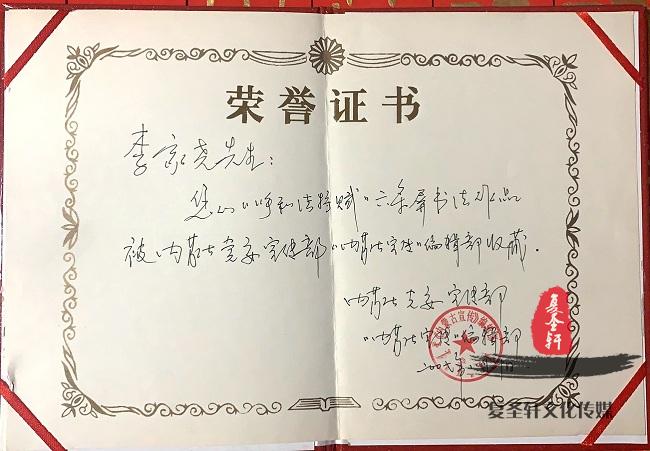 荣誉证书
李家尧先生：
您的“呼和浩特赋”六条屏书法作品
被内蒙古党委宣传部“内蒙古宣传”编辑部收藏.
内蒙古党委宣传部
“内蒙古宣传”编辑部
二〇〇七年
圣轩
圣轩文化传媒